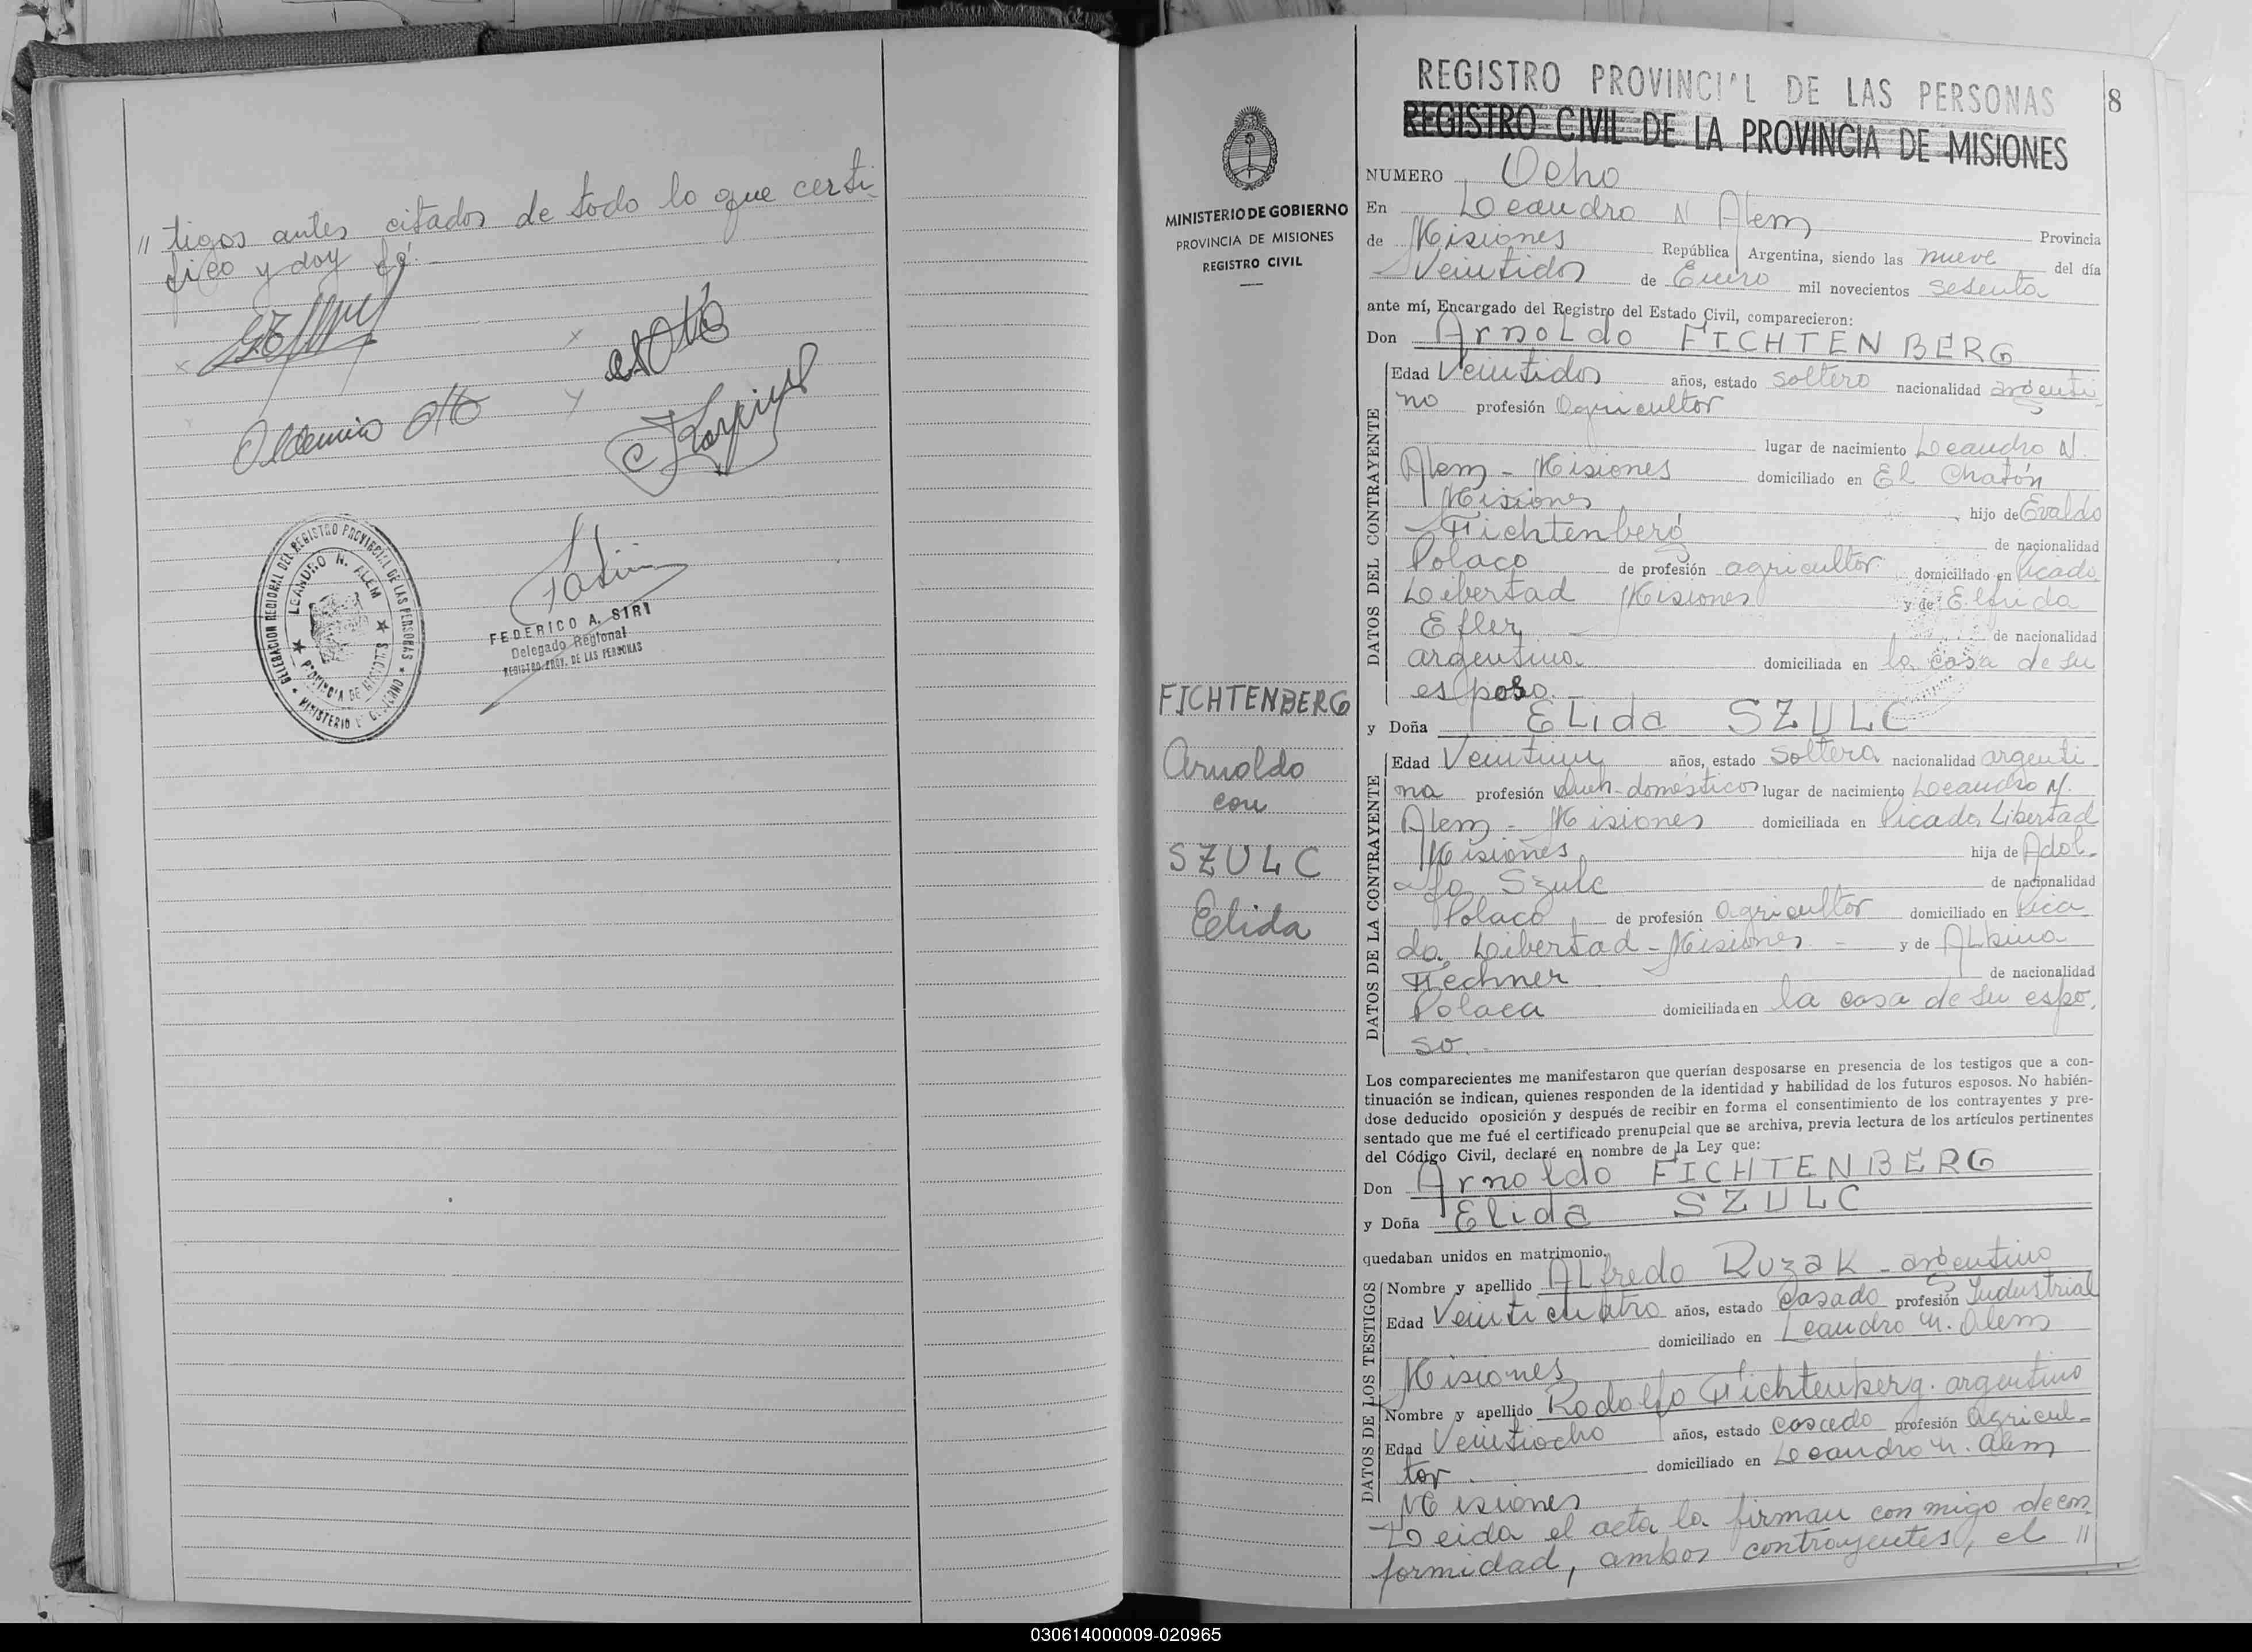 " tigos antes citados de todo lo que certi
fico y doy fé.-
Oldemio Otto
DELEGACION REGIONAL DEL REGISTRO PROVINCIAL DE LAS PERSONAS
LEANDRO N. ALEM
PROVINCIA DE MISIONES
MINISTERIO DE GOBIERNO
FEDERICO A. SIRI
Delegado Regional
REGISTRO PROV. DE LAS PERSONAS
MINISTERIO DE GOBIERNO
PROVINCIA DE MISIONES
REGISTRO CIVIL
FICHTENBERG
Arnoldo
con
SZULC
Elida
REGISTRO PROVINCIAL DE LAS PERSONAS
8
REGISTRO CIVIL DE LA PROVINCIA DE MISIONES
NUMERO Ocho
En Leandro N Alem Provincia
de Misiones República Argentina, siendo las nueve del día
Veintidos de Enero mil novecientos sesenta
ante mí, Encargado del Registro del Estado Civil, comparecieron:
Don Arnoldo FICHTENBERG
DATOS DEL CONTRAYENTE
Edad Veintidos años, estado soltero nacionalidad argenti
no profesión Agricultor
lugar de nacimiento Leandro N.
Alem - Misiones domiciliado en El Chatón
Misiones hijo de Evaldo
Fichtenberg de nacionalidad
Polaco de profesión agricultor domiciliado en Picada
Libertad Misiones y de Elfrida
Efler de nacionalidad
argentina domiciliada en la casa de su
esposo.-
y Doña Elida SZULC
DATOS DE LA CONTRAYENTE
Edad Veintiun años, estado soltera nacionalidad argenti
na profesión domésticos lugar de nacimiento Leandro N.
Alem - Misiones domiciliada en Picada Libertad
Misiones hija de Adol-
fo Szulc de nacionalidad
Polaco de profesión agricultor domiciliado en Pica
da Libertad - Misiones - y de Albina
Fechner de nacionalidad
Polaca domiciliada en la casa de su espo.
so.-
Los comparecientes me manifestaron que querían desposarse en presencia de los testigos que a con-
tinuación se indican, quienes responden de la identidad y habilidad de los futuros esposos. No habién-
dose deducido oposición y después de recibir en forma el consentimiento de los contrayentes y pre-
sentado que me fué el certificado prenupcial que se archiva, previa lectura de los artículos pertinentes
del Código Civil, declaré en nombre de la Ley que:
Don Arnoldo FICHTENBERG
y Doña Elida SZULC
quedaban unidos en matrimonio.
DATOS DE LOS TESTIGOS
Nombre y apellido Alfredo Ruzak - argentino
Edad Veinticuatro años, estado casado profesión Industrial
domiciliado en Leandro N. Alem
Misiones
Nombre y apellido Rodolfo Fichtenberg. argentino
Edad Veintiocho años, estado casado profesión agricul-
tor. domiciliado en Leandro N. Alem
Misiones
Leida el acta la firman con migo de con
formidad, ambos contrayentes, el "
030614000009-020965